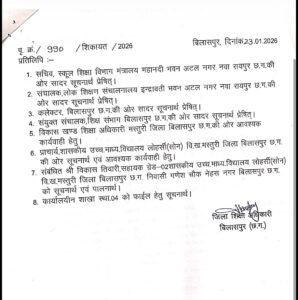 पृ. क्र./ 990 /शिकायत /2026 बिलासपुर, दिनांक 23.01.2026
प्रतिलिपि :-
1. सचिव, स्कूल शिक्षा विभाग मंत्रालय महानदी भवन अटल नगर नवा रायपुर छ.ग.की
ओर सादर सूचनार्थ प्रेषित्।
2. संचालक,लोक शिक्षण संचालनालय इन्द्रावती भवन अटल नगर नवा रायपुर छ.ग.
की ओर सादर सूचनार्थ प्रेषित्।
3. कलेक्टर, बिलासपुर छ.ग.की ओर सादर सूचनार्थ प्रेषित्।
4. संयुक्त संचालक,शिक्षा संभाग बिलासपुर छ.ग.की ओर सादर सूचनार्थ प्रेषित्।
5. विकास खण्ड शिक्षा अधिकारी मस्तुरी जिला बिलासपुर छ.ग. की ओर आवश्यक
कार्यवाही हेतु।
6. प्राचार्य,शासकीय उच्च.माध्य.विद्यालय लोहर्सी(सोन) वि.ख.मस्तुरी जिला बिलासपुर छ.ग.
की ओर सूचनार्थ एवं आवश्यक कार्यवाही हेतु।
7. संबंधित श्री विकास तिवारी,सहायक ग्रेड–02शासकीय उच्च.माध्य.विद्यालय लोहर्सी(सोन)
वि.ख.मस्तुरी जिला बिलासपुर छ.ग. निवासी गणेश चौक नेहरू नगर बिलासपुर छ.ग.
को सूचनार्थ एवं पालनार्थ।
8. कार्यालयीन शाखा स्था.04 को फाईल हेतु सूचनार्थ।
जिला शिक्षा अधिकारी
बिलासपुर (छ.ग.)